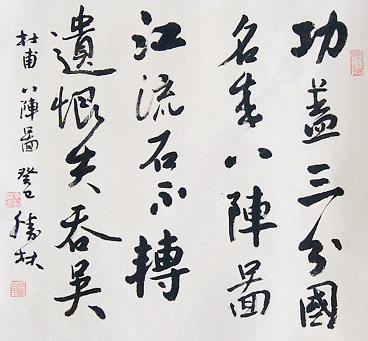 功盖三分國
名成八陣圖
江流石不轉
遺恨失吞吳
杜甫 八陣圖 癸巳 勝林